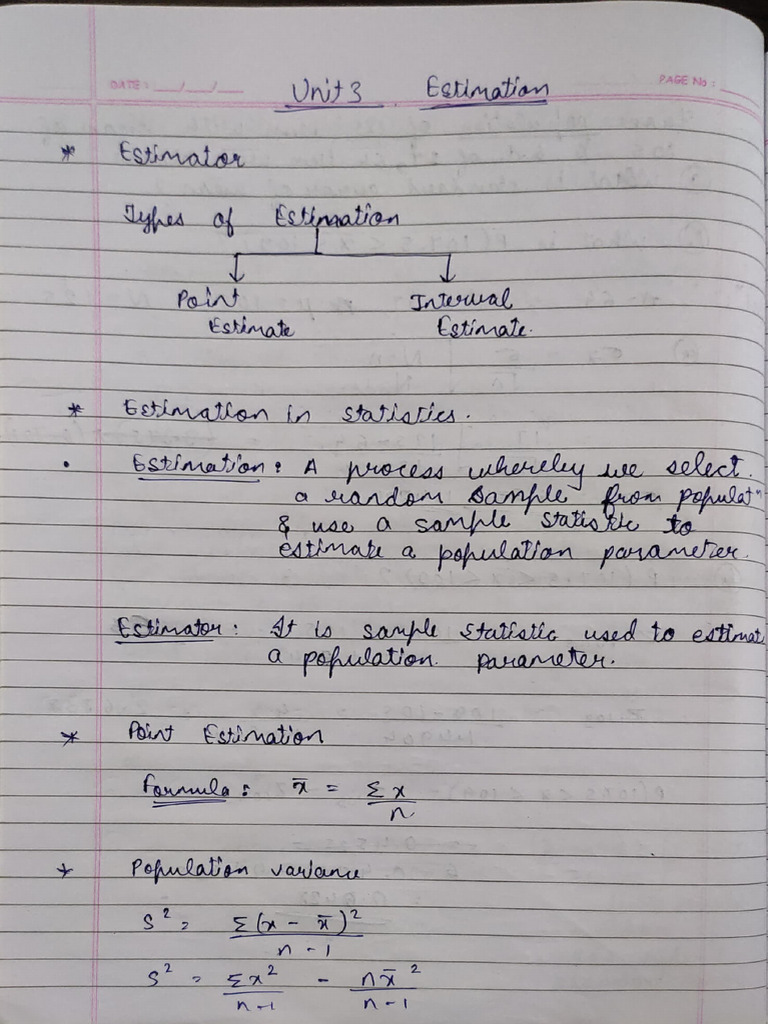 DATE: __/__/__
PAGE No.:
Unit 3 Estimation
* Estimator
Types of Estimation
Point Interval
Estimate Estimate.
* Estimation in statistics.
• Estimation: A process whereby we select
a random sample from populatⁿ
& use a sample statistic to
estimate a population parameter.
Estimator: It is sample statistic used to estimat
a population parameter.
* Point Estimation
Formula: x̄ = Σx
n
* Population variance
S² = Σ(x - x̄)²
n - 1
S² = Σx² - nx̄²
n-1 n-1